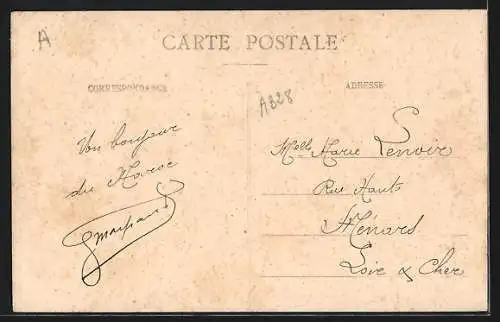 A
CARTE POSTALE
CORRESPONDANCE
ADRESSE
A328
Un bonjour
du Maroc
Melle Marie Lenoir
Rue Haute
Ménars
Loir & Cher